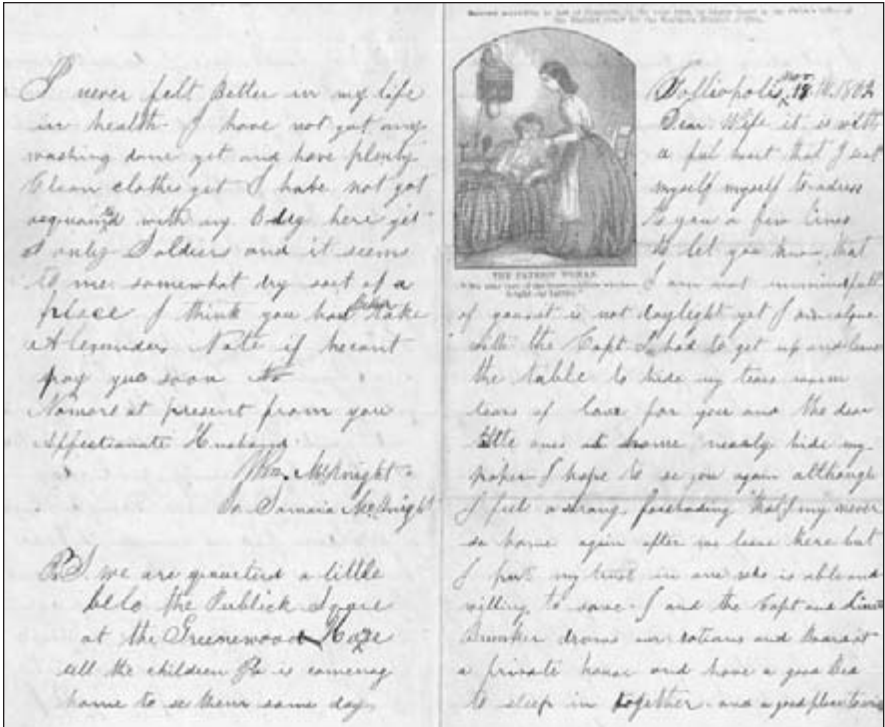 I never felt Better in my life
in health I have not got any
washing done yet and have plenty
Clean clothes yet I have not got
acquanted with my Body here yet
only Soldiers and it seems
to me somewhat dry sort of a
place I think you had better take
Alexanders Note if he cant
pay you soon
Nomore at present from you
Affectionate Husband
Wm. McKnight
to Samaria McKnight
P.S. we are quartered a little
belo the Publick Sqare
at the Greenewood
all the children Pa is comeing
home to se them some day
THE PATRIOT WOMAN.
Galliopolis, Nov 18th 1862
Dear Wife it is with
a ful heart that I seat
myself myself to adress
to you a few lines
to let you know that
I am not unmindfull
of you it is not daylight yet I am alone
with the Capt I had to get up and leave
the table to hide my tears warm
tears of love for you and the dear
little ones at home nearly hide my
paper I hope to se you again although
I feel a strong foreboding that I my never
se home again after we leave here but
I put my trust in one who is able and
willing to save I and the Capt and Lieut
draws our rations and
a private house and have a good Bed
to sleep in together and a good place to